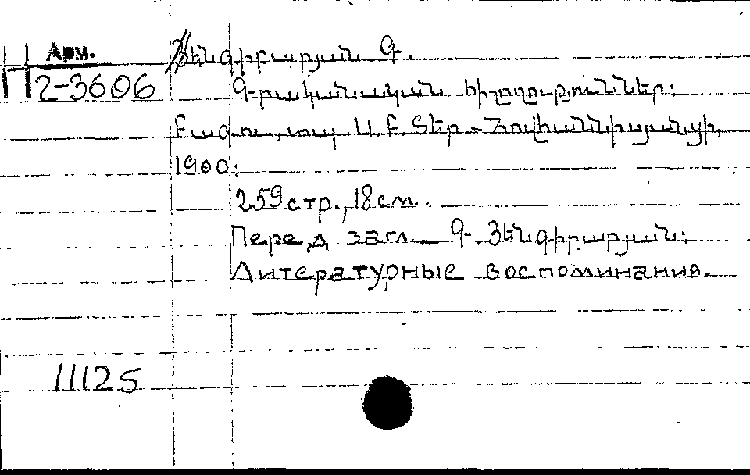 Арм.
П2-3606
Յենգիբարյան Գ.
Գրականական հիշողություններ:
Բագու, տպ. Ա. Բ. Տեր-Հովհաննիսյանցի,
1900.
259 стр., 18 см.
Перед загл. Գ. Յենգիբարյան:
Литературные воспоминания.
11125